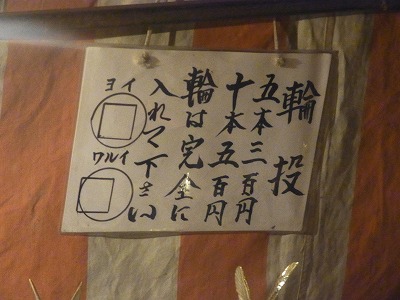 輪投
五本三百円
十本五百円
輪は完全に
入れて下さい
ヨイ
ワルイ